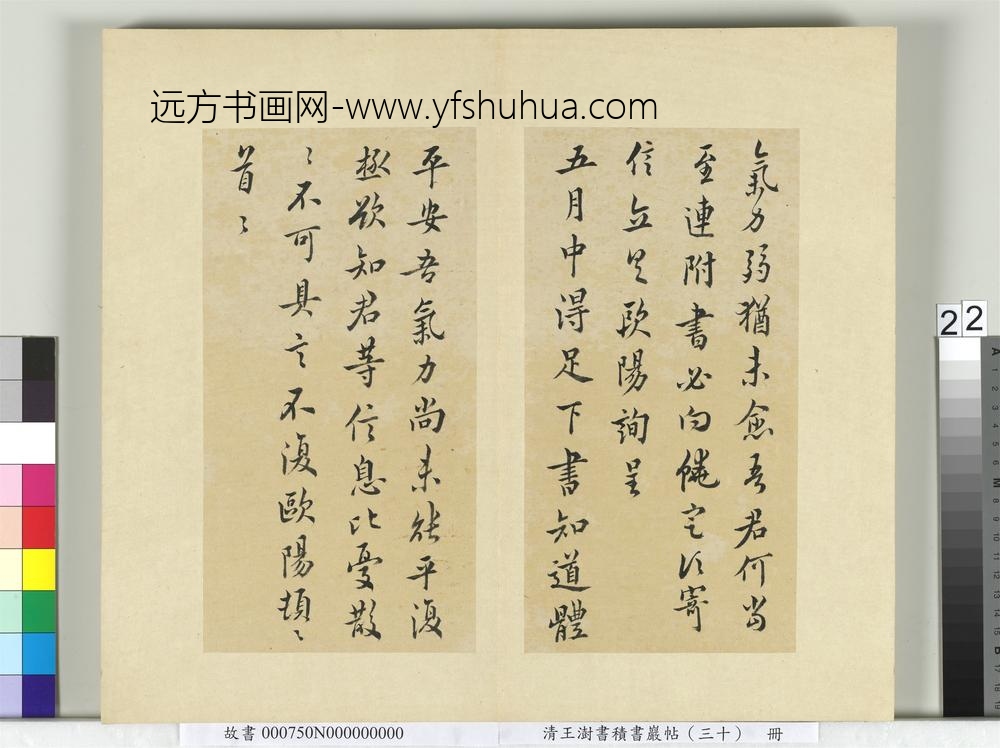 远方书画网-www.yfshuhua.com
氣力弱猶未愈吾君何當
至連附書必向饒定須寄
信立具歐陽詢呈
五月中得足下書知道體
平安吾氣力尚未能平復
極欲知君等信息比憂散
〻不可具言不復歐陽頓〻
首〻
22
故書 000750N000000000
清王澍書積書巖帖（三十） 冊